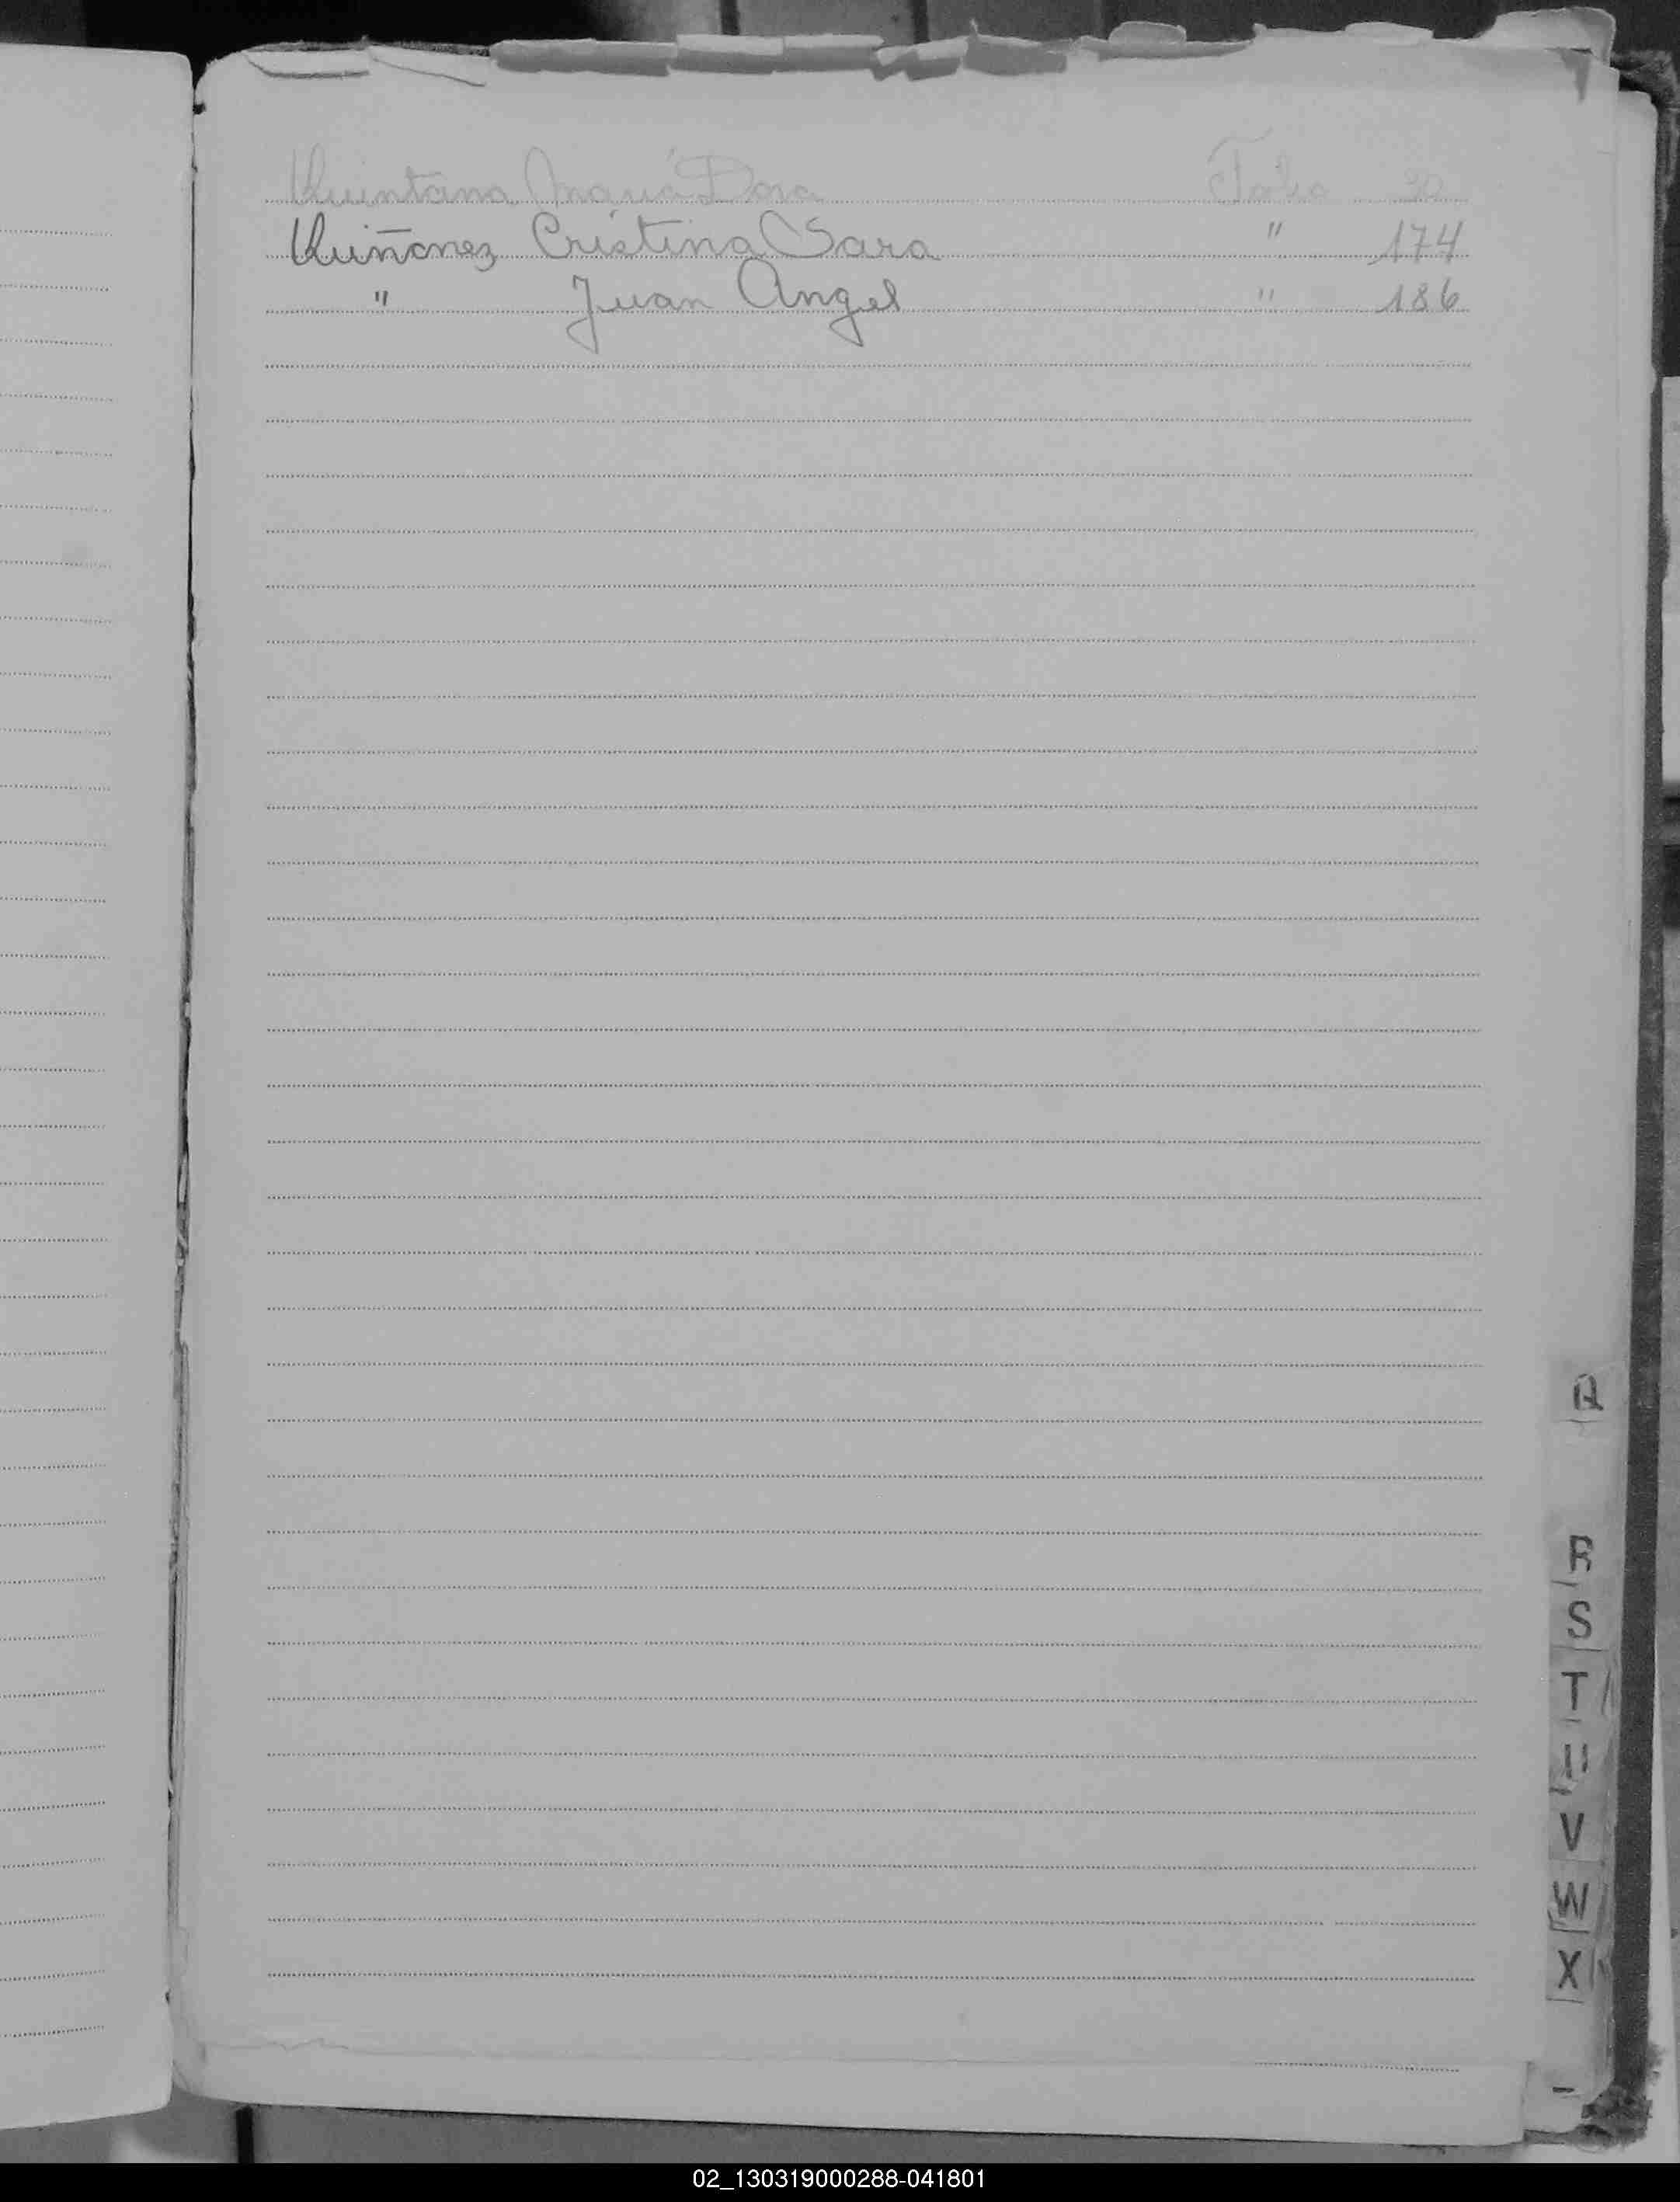 Quintana María Dora Folio 30
Quiñonez Cristina Sara " 174
" Juan Angel " 186
Q
R
S
T
U
V
W
X
02_130319000288-041801